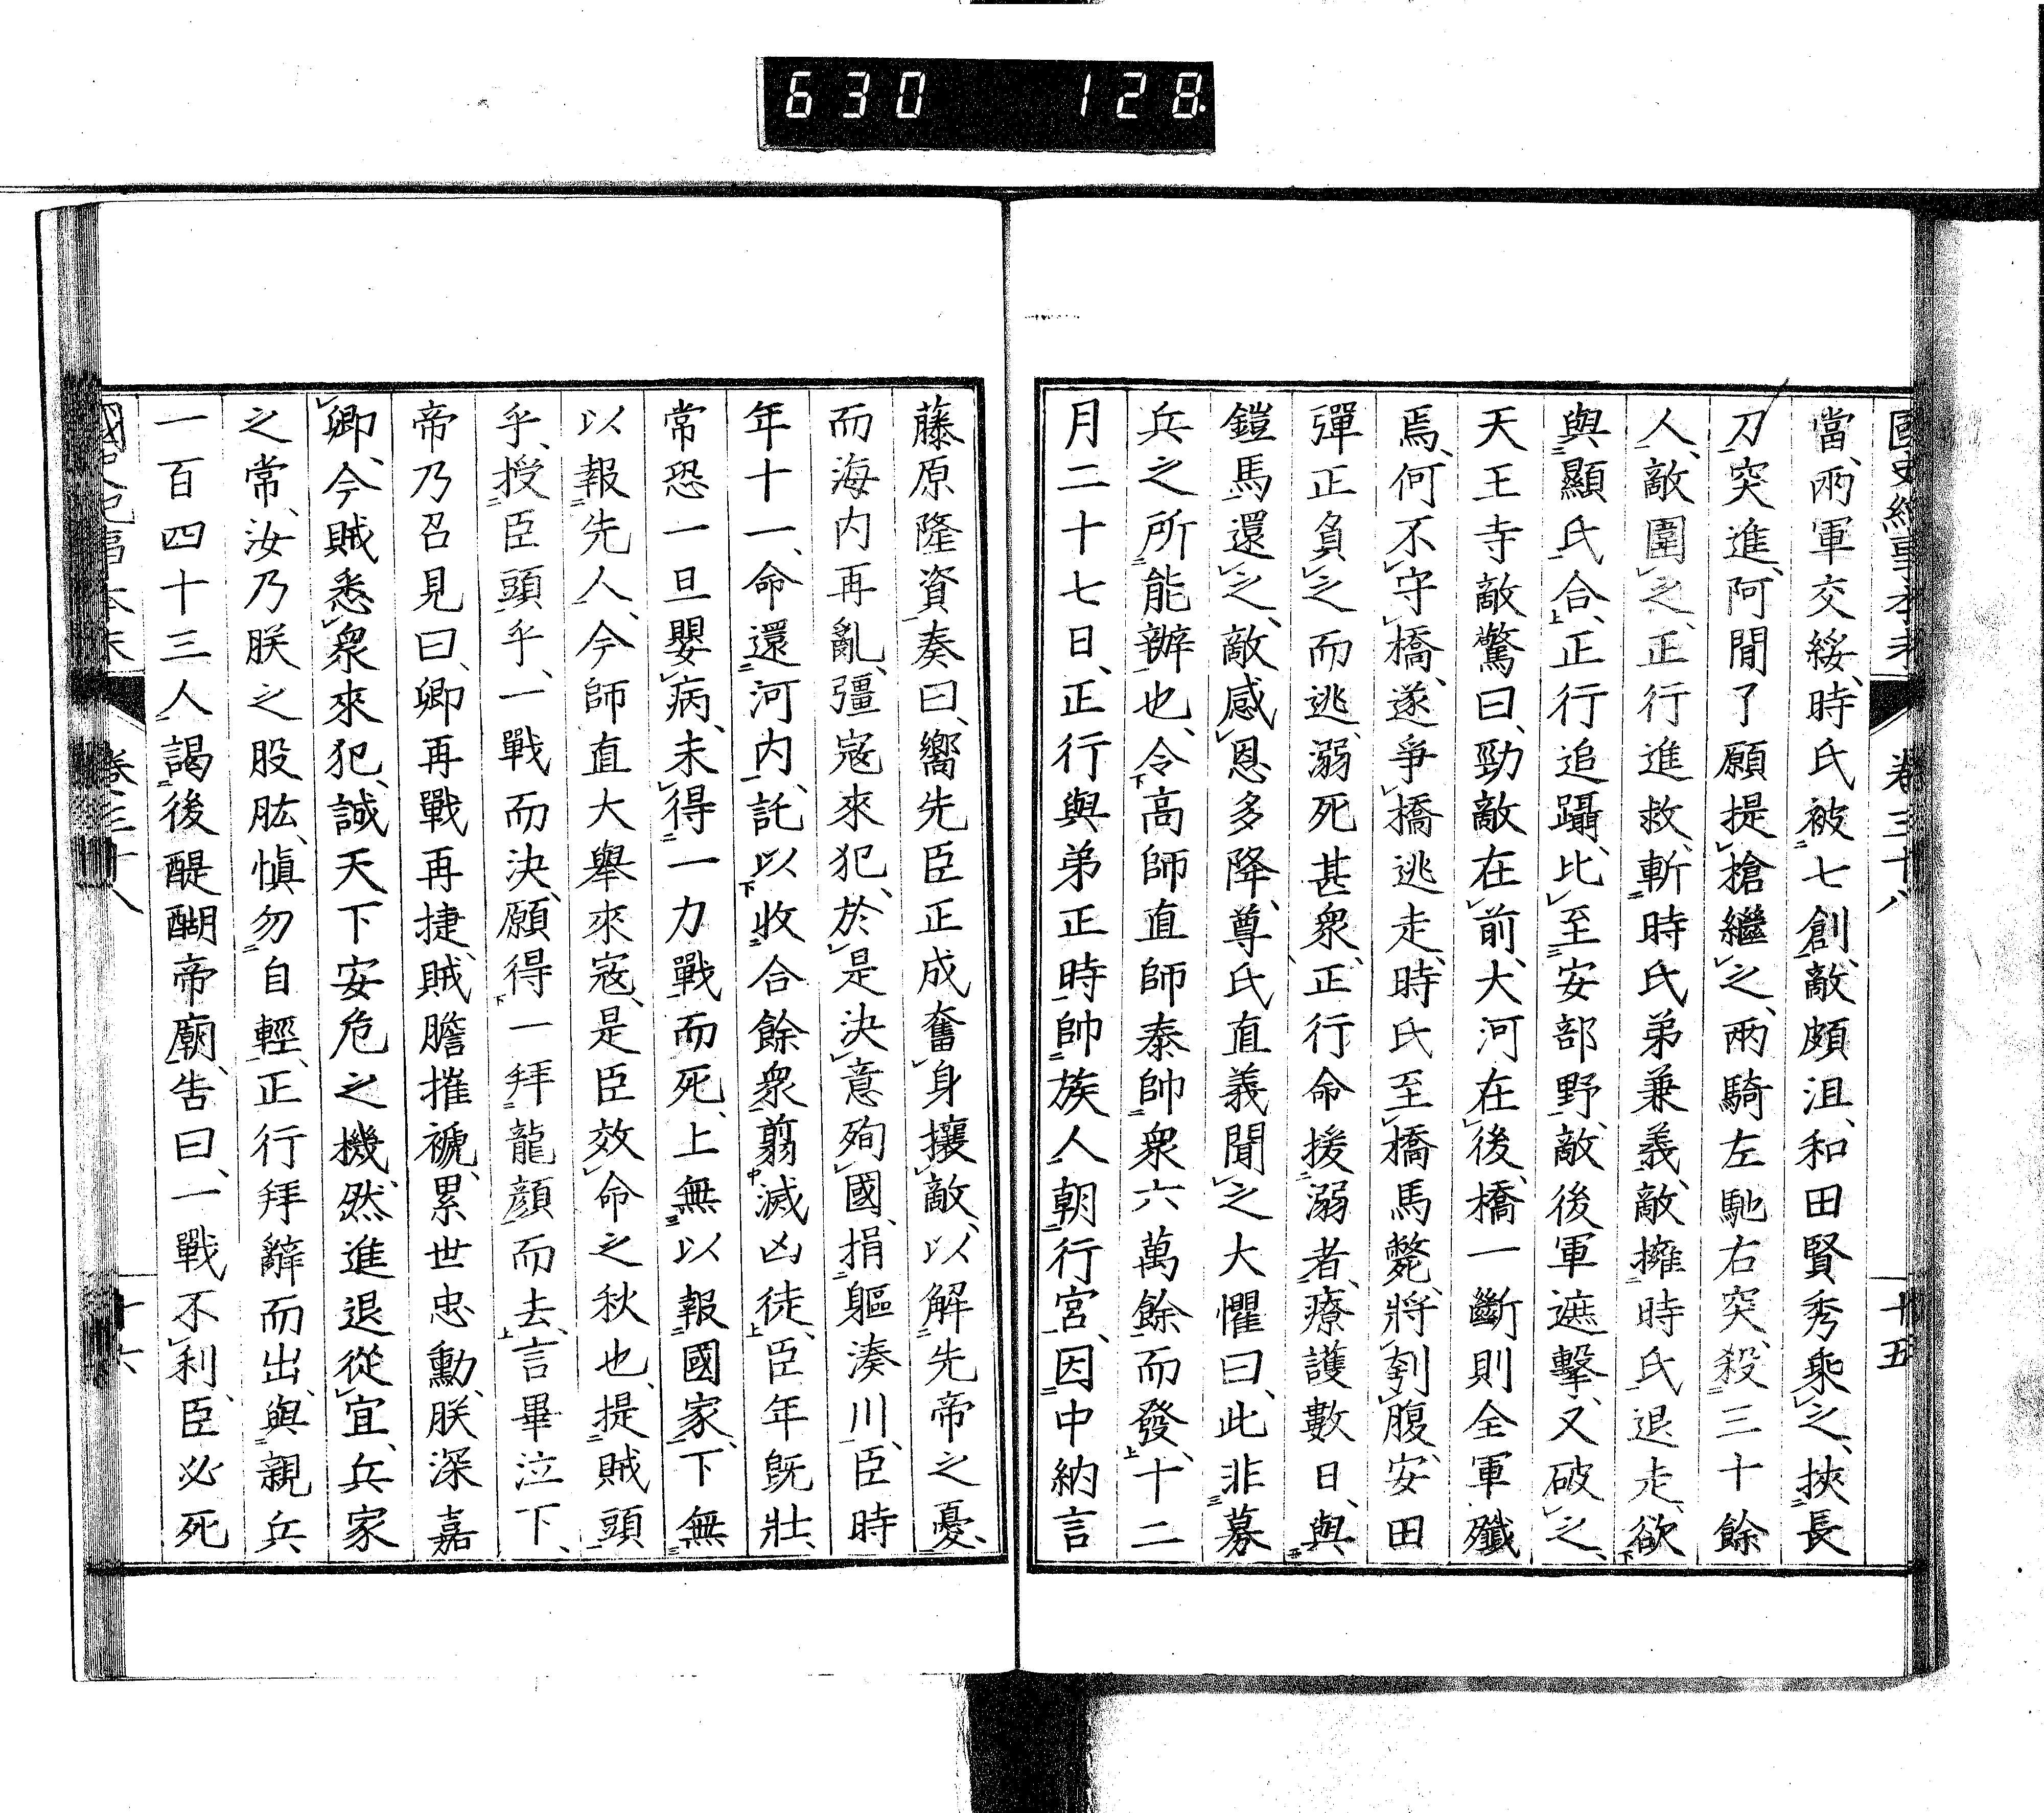 630 128
國史紀事本末 卷三十八 十五
當、兩軍交綏、時氏被七創、敵頗沮、和田賢秀乘之、挾長
刀突進、阿閒了願提槍繼之、兩騎左馳右突、殺三十餘
人、敵圍之、正行進救、斬時氏弟兼義、敵擁時氏退走、欲
與顯氏合、正行追躡、比至安部野、敵後軍遮擊、又破之、
天王寺敵驚曰、勁敵在前、大河在後、橋一斷則全軍殲
焉、何不守橋、遂爭橋逃走、時氏至橋馬斃、將刳腹、安田
彈正負之而逃、溺死甚衆、正行命援溺者、療護數日、與
鎧馬還之、敵感恩多降、尊氏直義聞之大懼曰、此非募
兵之所能辦也、令高師直師泰帥衆六萬餘而發、十二
月二十七日、正行與弟正時帥族人朝行宮、因中納言
藤原隆資奏曰、嚮先臣正成奮身攘敵、以解先帝之憂、
而海内再亂、彊寇來犯、於是決意殉國、捐軀湊川、臣時
年十一、命還河内、託以收合餘衆翦滅凶徒、臣年既壯、
常恐一旦嬰病、未得一力戰而死、上無以報國家、下無
以報先人、今師直大舉來寇、是臣效命之秋也、提賊頭
乎、授臣頭乎、一戰而決、願得一拜龍顔而去、言畢泣下、
帝乃召見曰、卿再戰再捷、賊膽摧褫、累世忠勳、朕深嘉
卿、今賊悉衆來犯、誠天下安危之機、然進退從宜、兵家
之常、汝乃朕之股肱、愼勿自輕、正行拜辭而出、與親兵
一百四十三人謁後醍醐帝廟、告曰、一戰不利、臣必死
國史紀事本末 卷三十八 十六